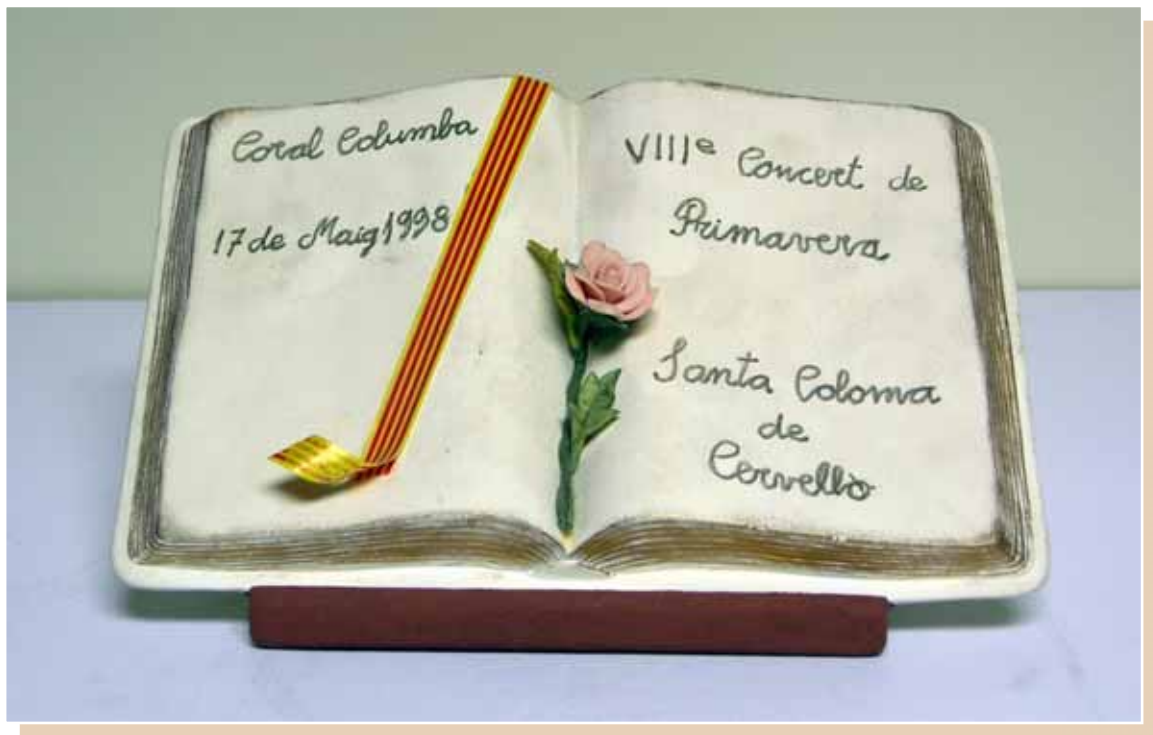 Coral Columba
17 de Maig 1998
VIIIe Concert de
Primavera
Santa Coloma
de
Cervelló